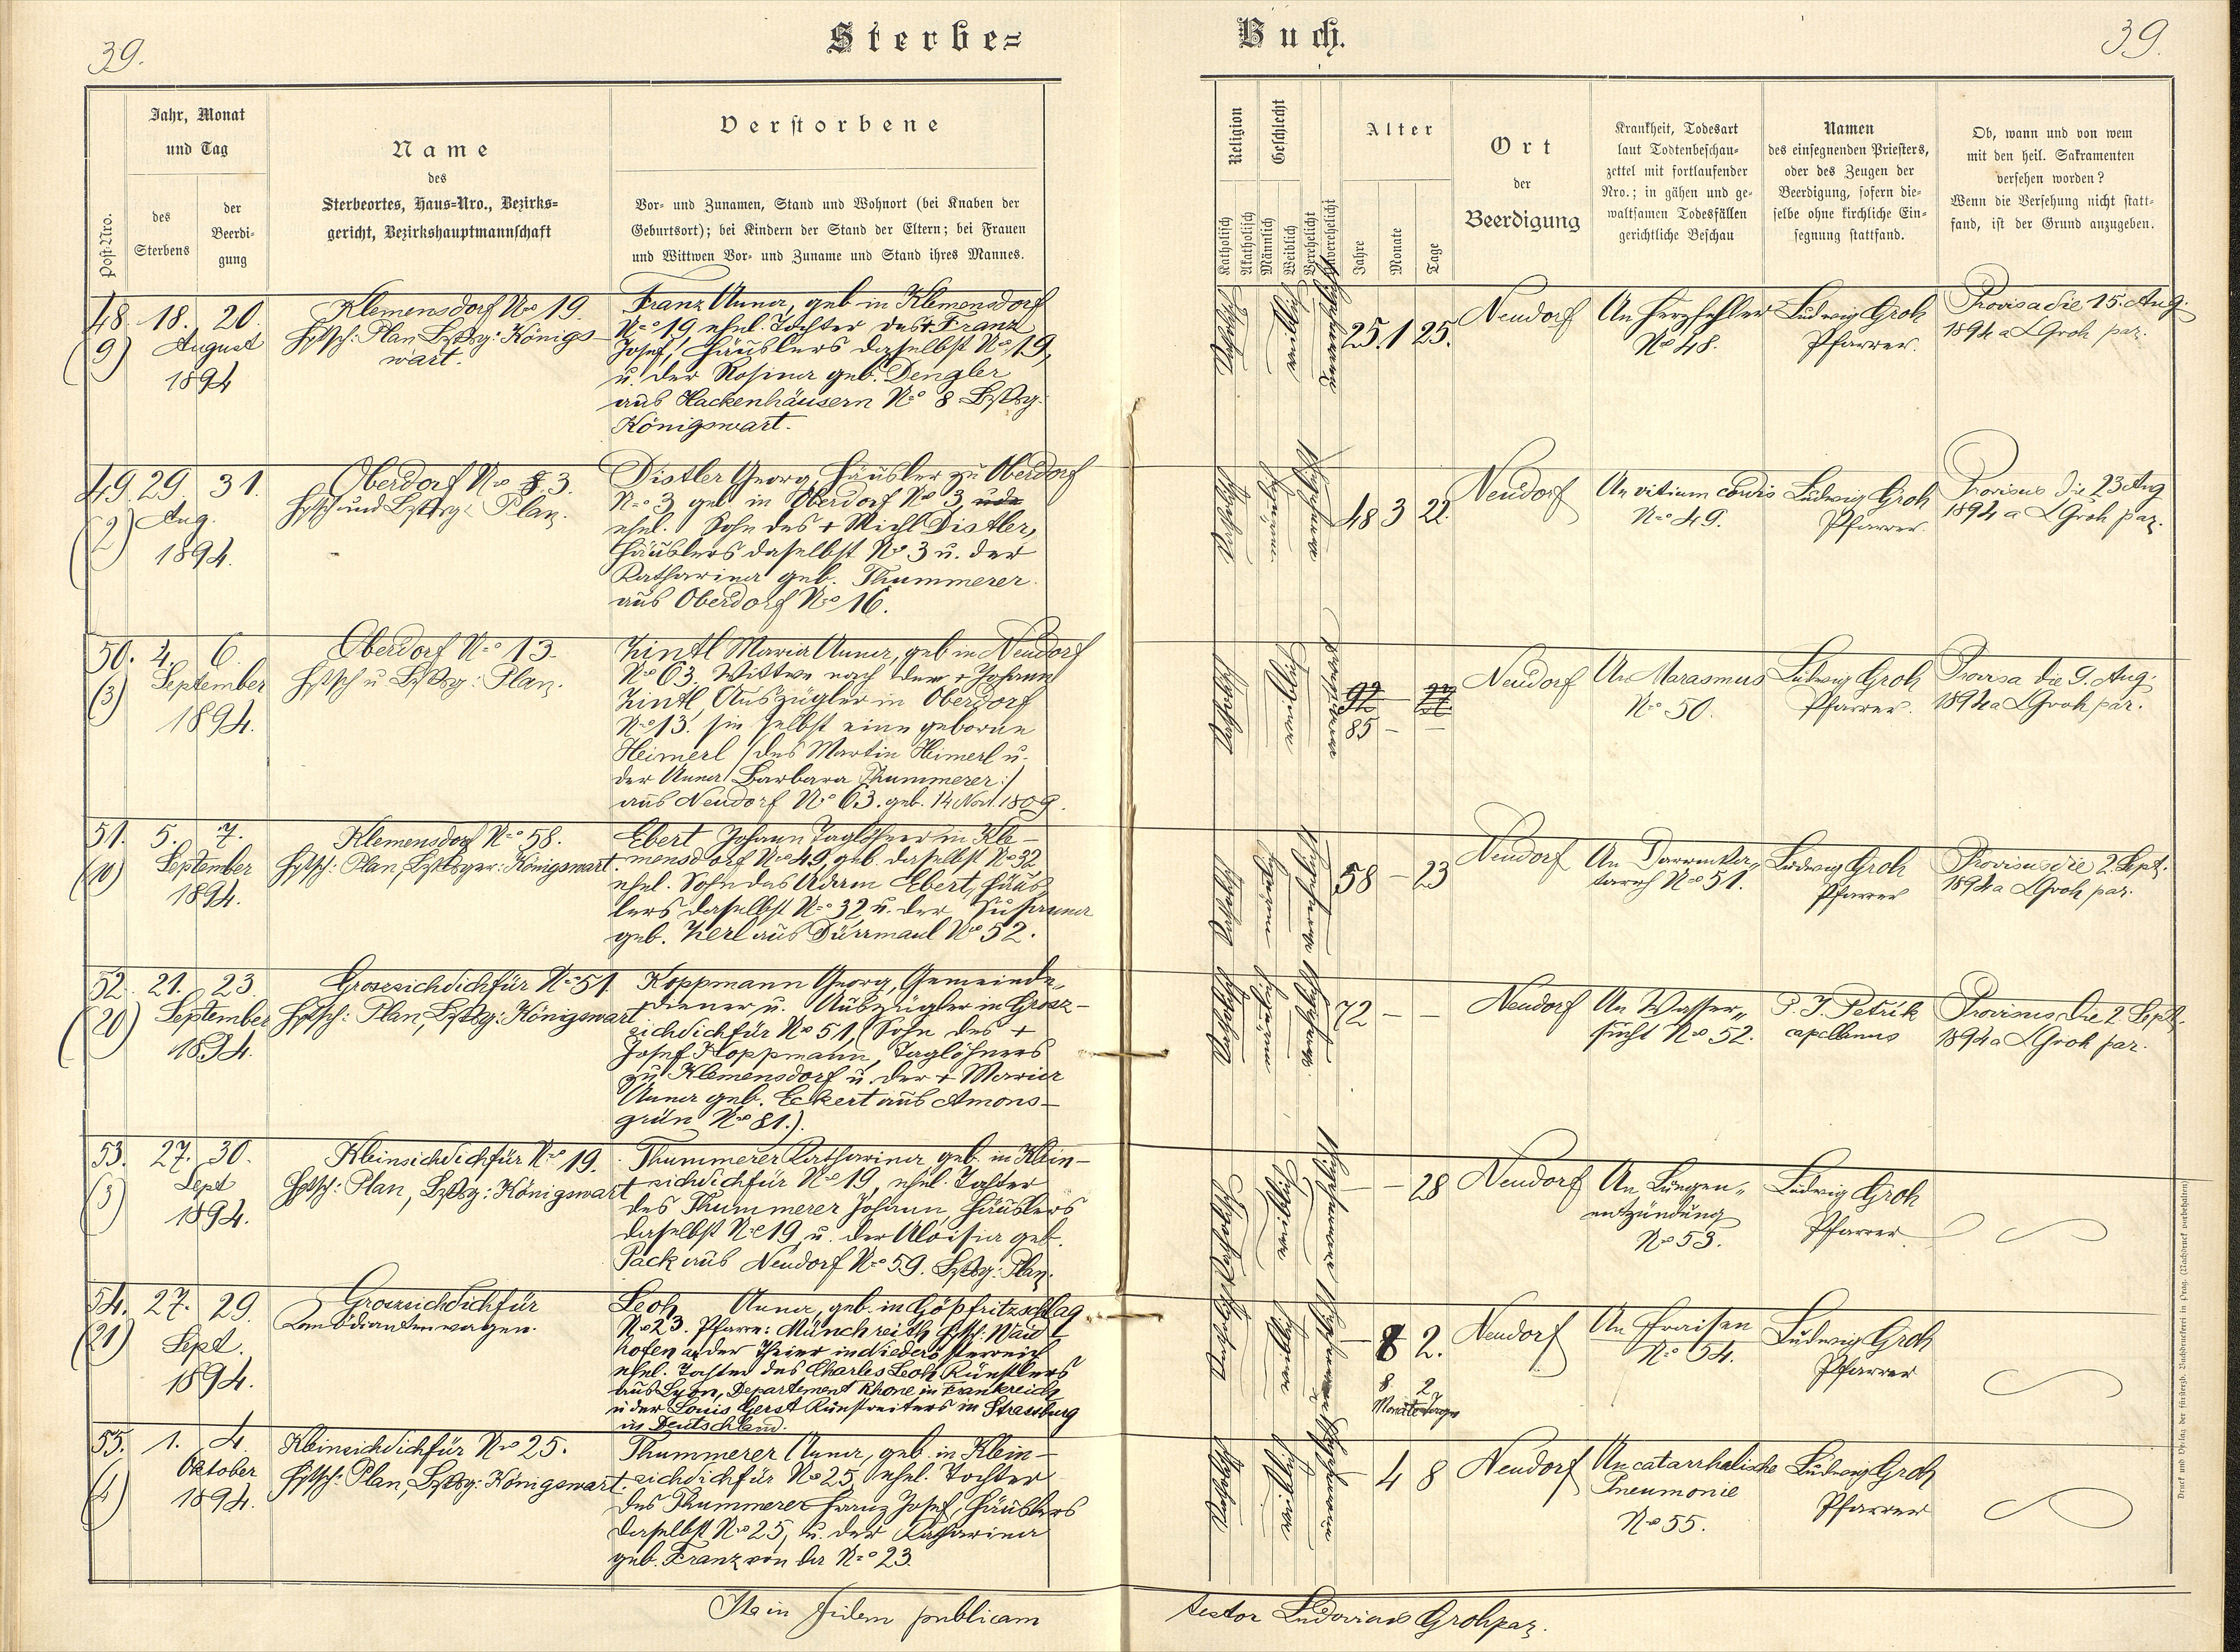 39.
Sterbe=
Buch.
39.
Post-Nro.
Jahr, Monat
und Tag
des
Sterbens
der
Beerdi-
gung
Name
des
Sterbeortes, Haus-Nro., Bezirks-
gericht, Bezirkshauptmannschaft
Verstorbene
Vor- und Zunamen, Stand und Wohnort (bei Knaben der
Geburtsort); bei Kindern der Stand der Eltern; bei Frauen
und Wittwen Vor- und Zuname und Stand ihres Mannes.
Religion
Katholisch
Akatholisch
Geschlecht
Männlich
Weiblich
Verehelicht
Unverehelicht
Alter
Jahre
Monate
Tage
Ort
der
Beerdigung
Krankheit, Todesart
laut Todtenbeschau-
zettel mit fortlaufender
Nro.; in gähen und ge-
waltsamen Todesfällen
gerichtliche Beschau
Namen
des einsegnenden Priesters,
oder des Zeugen der
Beerdigung, sofern die-
selbe ohne kirchliche Ein-
segnung stattfand.
Ob, wann und von wem
mit den heil. Sakramenten
versehen worden?
Wenn die Versehung nicht statt-
fand, ist der Grund anzugeben.
48. 18. 20.
(9) August
1894
Klemensdorf No 19.
Htsch: Plan Bzksg: Königs-
wart.
Franz Anna, geb in Klemensdorf
No 19 ehel. Tochter des + Franz
Josef, Häuslers daselbst No 19,
u. der Rosina geb. Dengler
aus Hackenhäusern No 8 Bzksg.
Königswart.
Katholisch
weiblich
unverehelicht
25. 1 25.
Neudorf
An Herzfehler
No 48.
Ludwig Groh
Pfarrer.
Provisa die 15. Aug.
1894 a L Groh par.
49. 29 31.
(2) Aug.
1894.
Oberdorf No 3.
Htsch und Bzksg: Plan.
Distler Georg, Häusler zu Oberdorf
No 3 geb in Oberdorf No 3,
ehel. Sohn des + Michl Distler,
Häuslers daselbst No 3 u. der
Katharina geb. Thummerer
aus Oberdorf No 16.
Katholisch
männlich
verehelicht
48 3 22.
Neudorf
An vitium cordis
No 49.
Ludwig Groh
Pfarrer.
Provisus die 23 Aug
1894 a L Groh par.
50. 4. 6
(3) September
1894.
Oberdorf No 13.
Htsch u Bzksg: Plan.
Zintl Maria Anna, geb in Neudorf
No 63. Wittwe nach dem + Johann
Zintl, Auszügler in Oberdorf
No 13. sie selbst eine geborne
Heimerl /: des Martin Heimerl u.
der Anna Barbara Thummerer :/
aus Neudorf No 63. geb. 14 Nov. 1809.
Katholisch
weiblich
92 - 27
85 - -
Neudorf
An Marasmus
No 50.
Ludwig Groh
Pfarrer.
Provisa die 9. Aug.
1894 a L Groh par.
51. 5. 7.
September
1894.
Klemensdorf No 58.
Htsch: Plan, Bzksger: Königswart.
Ebert Johann Taglöhner in Kle-
mensdorf No 49, geb. daselbst No 32
ehel. Sohn des Adam Ebert, Häus-
lers daselbst No 32 u. der Susanna
geb. Kerl aus Dürrmaul No 52.
Katholisch
männlich
verehelicht
58 - 23
Neudorf
An Darmka-
tarrh No 51.
Ludwig Groh
Pfarrer
Provisus die 2. Sept.
1894 a L Groh par.
52. 21. 23.
(20) September
1894.
Grosssichdichfür No 51
Htsch: Plan, Bzksg: Königswart
Koppmann Georg, Gemeinde-
diener u. Auszügler in Gross-
sichdichfür No 51, (Sohn des +
Josef Koppmann, Taglöhners
zu Klemensdorf u. der + Maria
Anna geb. Eckert aus Amons-
grün No 81.).
Katholisch
männlich
verehelicht
72 - -
Neudorf
An Wasser-
sucht No 52.
P. J. Petrik
capellanus
Provisus die 2. Sept.
1894 a L Groh par.
53. 27. 30.
(3) Sept
1894.
Kleinsichdichfür No 19.
Htsch: Plan, Bzksg: Königswart
Thummerer Katharina geb. in Klein-
sichdichfür No 19, ehel. Tochter
des Thummerer Johann, Häuslers
daselbst No 19 u. der Aloisia geb.
Pack aus Neudorf No 59. Bzksg: Plan.
Katholisch
weiblich
unverehelicht
- - 28
Neudorf
An Lungen-
entzündung
No 53.
Ludwig Groh
Pfarrer
54. 27. 29.
(21) Sept.
1894.
Grosssichdichfür
Komödiantenwagen.
Leoh Anna, geb. in Göpfritzschlag
No 23. Pfarre: Münchreith Htsch: Waid-
hofen an der Theier in Niederösterreich
ehel. Tochter des Charles Leoh Künstlers
aus Lyon, Departement Rhone in Frankreich
u der Louis Gerst Kunstreiters in Strassburg
in Deutschland.
Katholisch
weiblich
unverehelicht
- 8 2.
8 2
Monate Tage
Neudorf
An Fraisen
No 54.
Ludwig Groh
Pfarrer
55. 1. 4.
Oktober
1894.
Kleinsichdichfür No 25.
Htsch: Plan, Bzksg: Königswart.
Thummerer Anna, geb. in Klein-
sichdichfür No 25, ehel. Tochter
des Thummerer Franz Josef, Häuslers
daselbst No 25, u. der Katharina
geb. Franz von da No 23.
Katholisch
weiblich
unverehelicht
- 4 8
Neudorf
An catarrhalische
Pneumonie
No 55.
Ludwig Groh
Pfarrer
Ita in fidem publicam
testor Ludovicus Groh par.
Druck und Verlag der fürsterzb. Buchdruckerei in Prag. (Nachdruck vorbehalten)